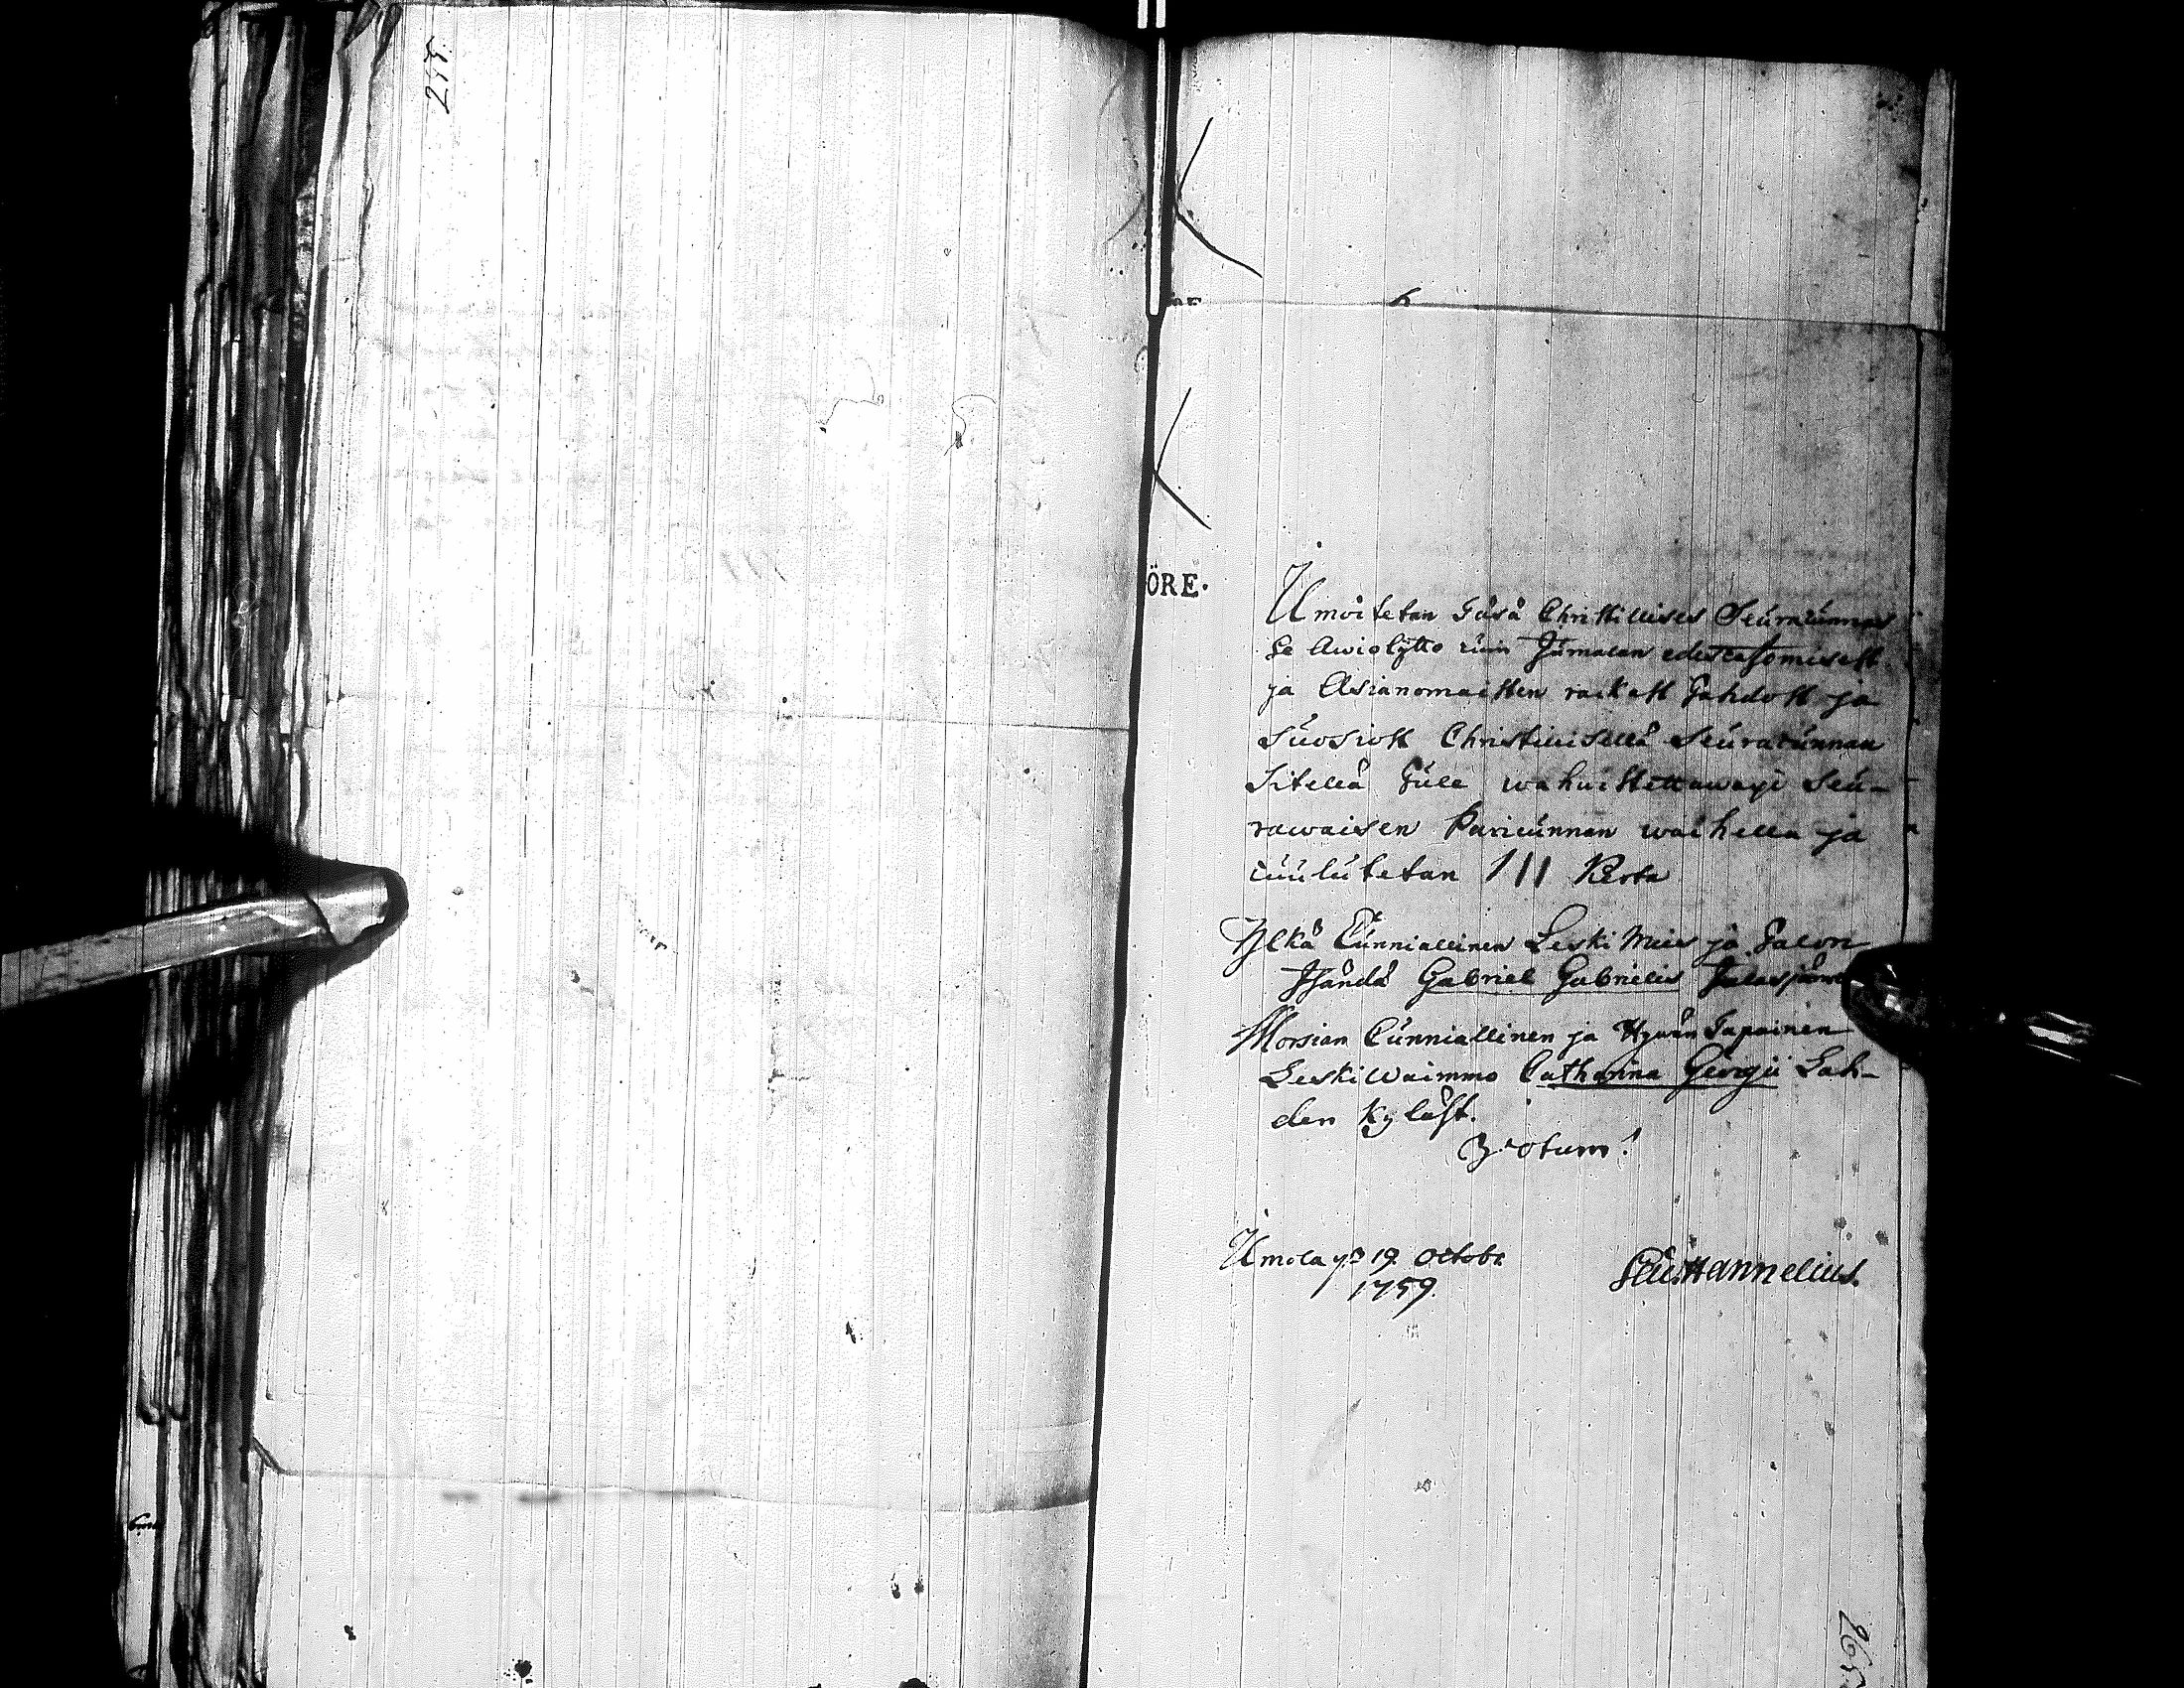 245.
ÖRE.
Ilmoitetan Täsä Christillises Seuracunnas
Se Awiolijtto cuin Jumalan edescazomisest
ja Asianomaisten rackast Tahdost ja
Suosiost Christillisellä Seuracunnan
Sitellä Tule wahwistettawaxi Seu-
rawaisen Paricunnan waihella ja
cuulutetan III Kerta
Ylkä Cunniallinen Leski Mies ja Talon
Isändä Gabriel Gabrielis Jalasjärwe
Morsian Cunniallinen ja Hywän Tapainen
Leski waimmo Catharina Georgii Lah-
den Kyläst.
Votum!
Ilmola 19 Octobr.
1759.
Hannelius.
265